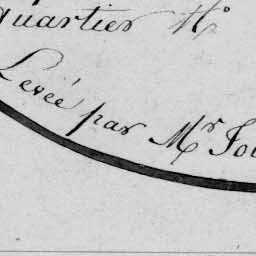 quartier N°
Levée par Mr